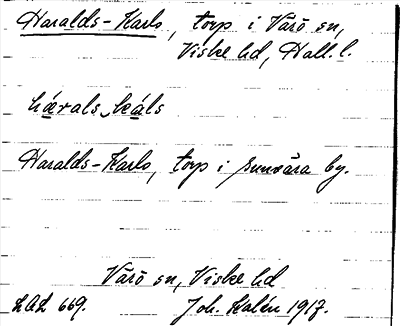 Haralds-Karls, torp i Värö sn,
Viske hd, Hall. l.
hærals kals
Haralds-Karls, torp i sunvära by.
Värö sn, Viske hd
LAL 669. Joh. Kalén 1917.